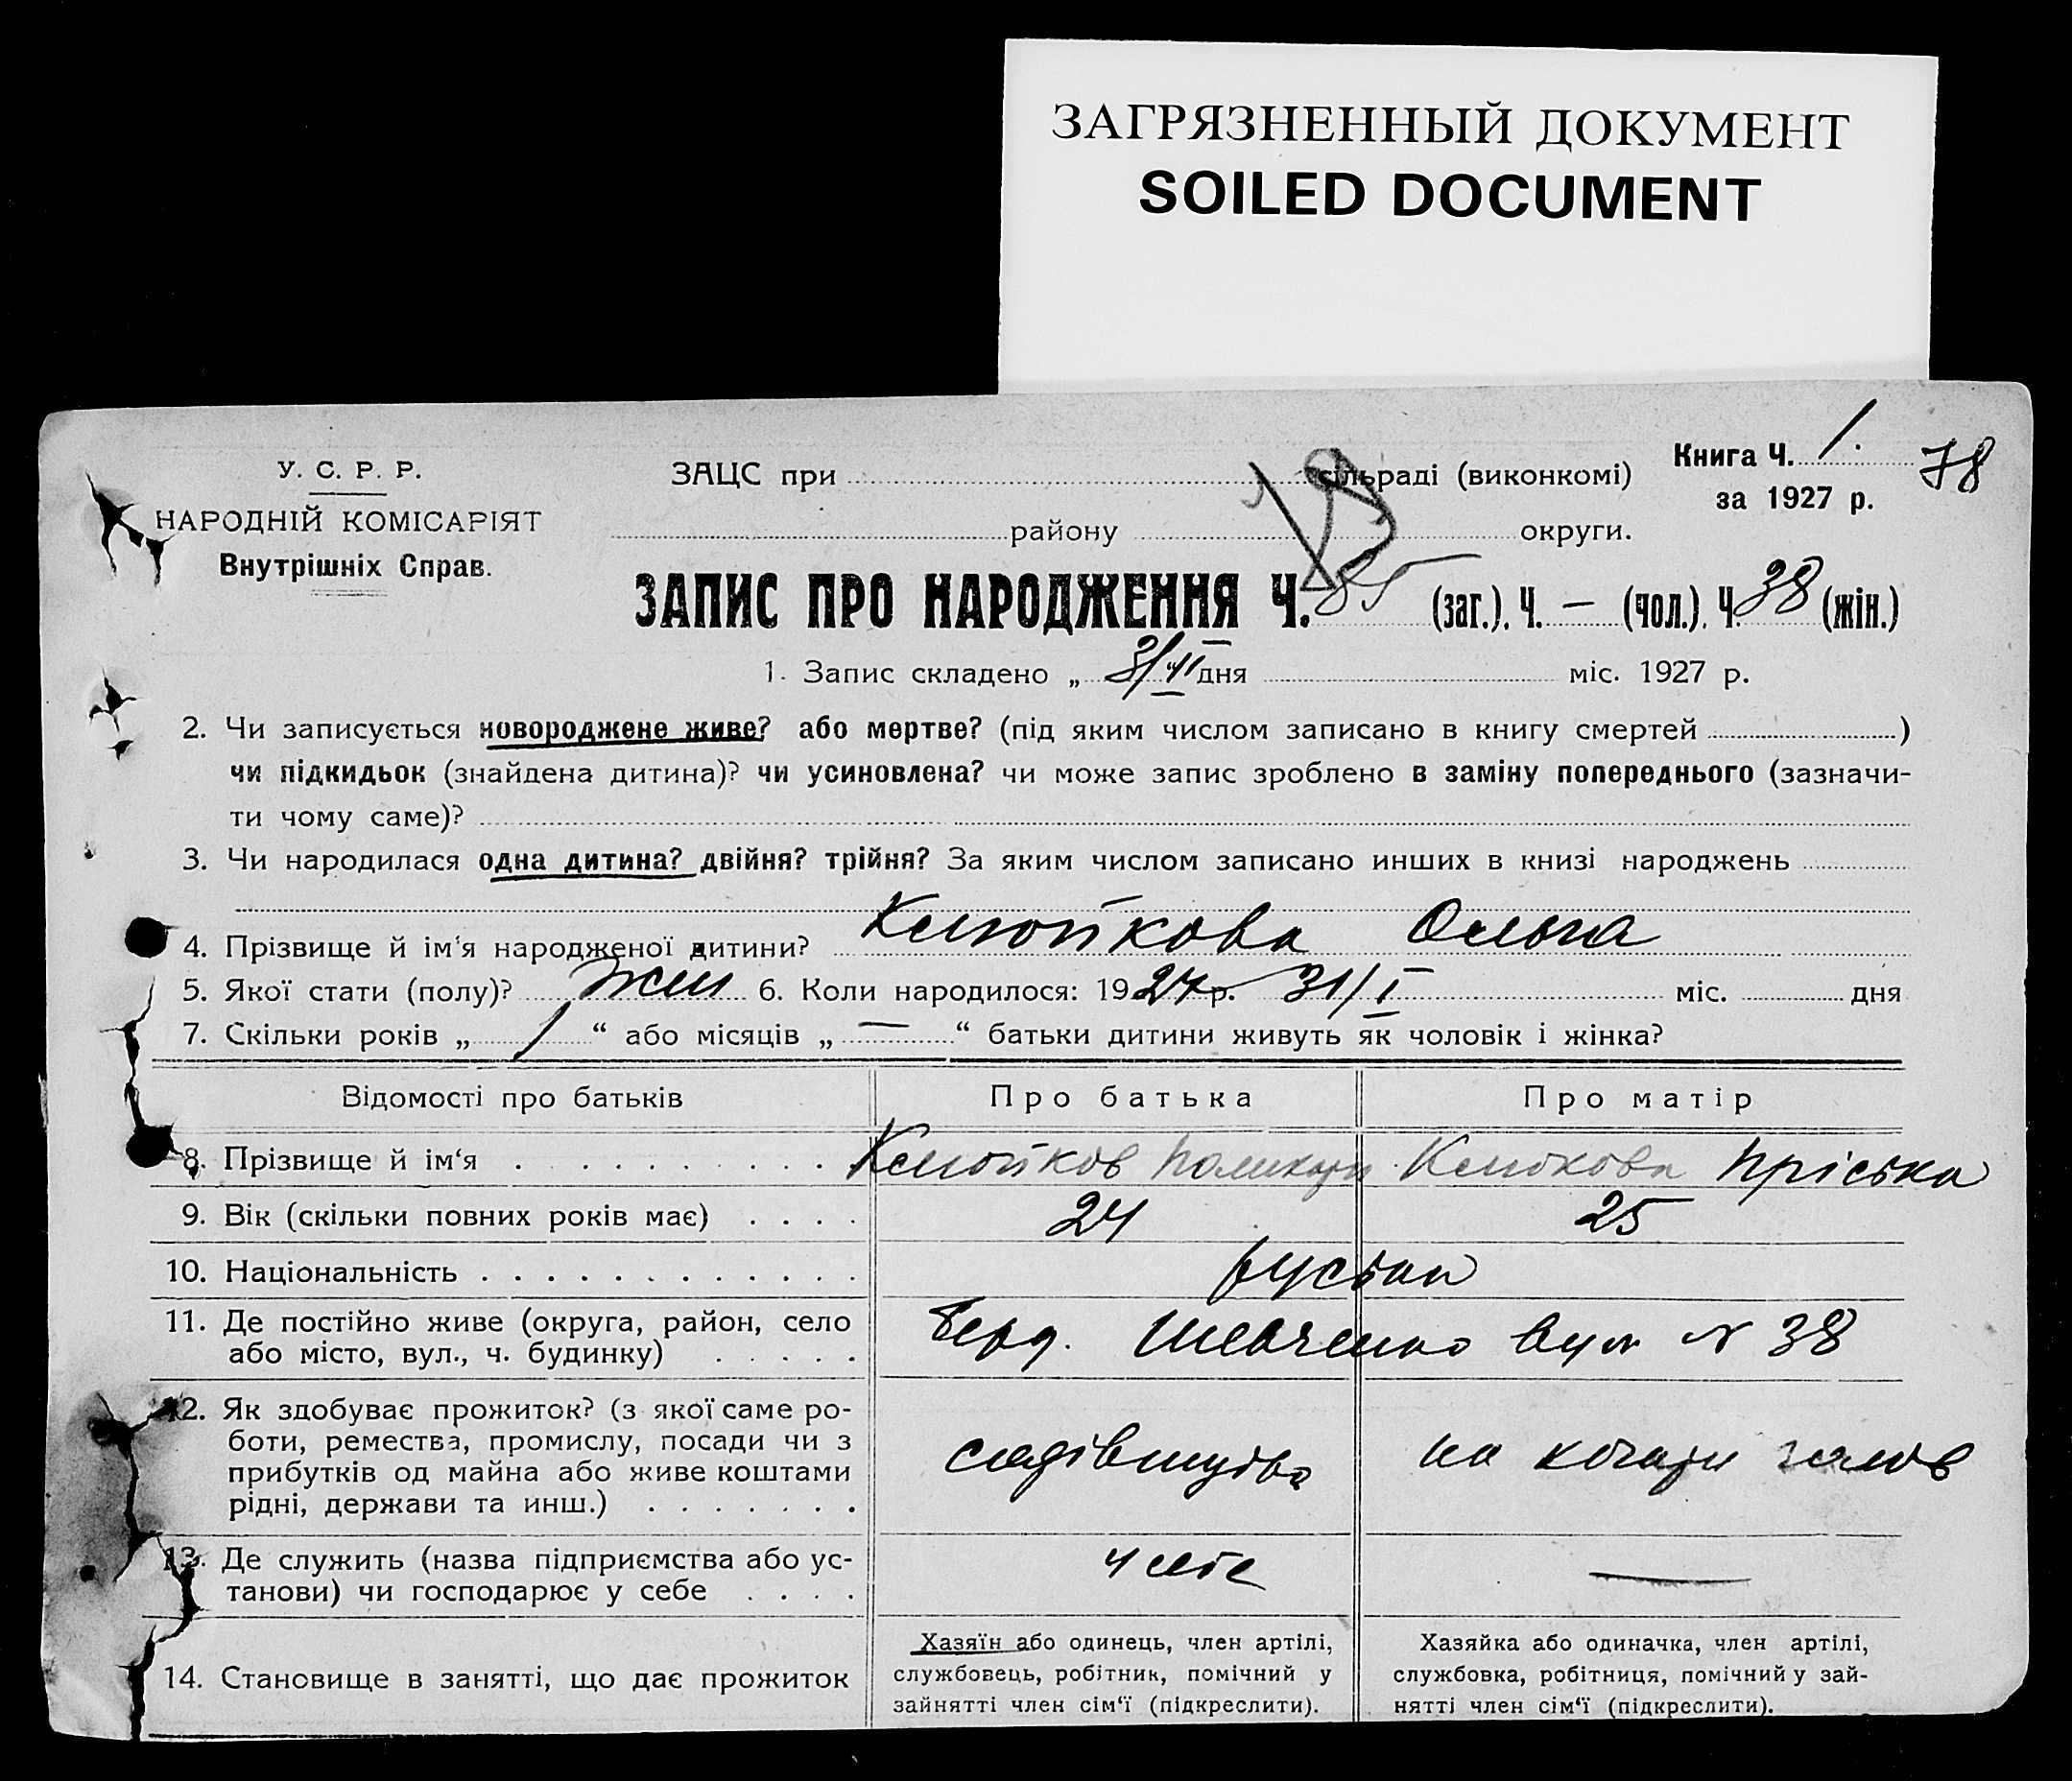 ЗАГРЯЗНЕННЫЙ ДОКУМЕНТ
SOILED DOCUMENT
У. С. Р. Р.
НАРОДНІЙ КОМІСАРІЯТ
Внутрішніх Справ.
ЗАЦС при сільраді (виконкомі)
району округи.
Книга Ч. 1.
за 1927 р.
78
ЗАПИС ПРО НАРОДЖЕННЯ Ч. 85 (заг.). Ч. — (чол.). Ч. 38 (жін.)
1. Запис складено „ дня міс. 1927 р.
2. Чи записується новороджене живе? або мертве? (під яким числом записано в книгу смертей )
чи підкидьок (знайдена дитина)? чи усиновлена? чи може запис зроблено в заміну попереднього (зазначи-
ти чому саме)?
3. Чи народилася одна дитина? двійня? трійня? За яким числом записано инших в книзі народжень
4. Прізвище й ім'я народженої дитини? Ольга
5. Якої стати (полу)? жін 6. Коли народилося: 1927 р. 31/I міс. дня
7. Скільки років „ 1 “ або місяців „ — “ батьки дитини живуть як чоловік і жінка?
Відомості про батьків
Про батька
Про матір
8. Прізвище й ім‘я . . . . . . . . . . Пріська
9. Вік (скільки повних років має) . . . . 24 25
10. Національність . . . . . . . . . . . .
11. Де постійно живе (округа, район, село
або місто, вул., ч. будинку) . . . . .
Берд. Шевченко вул N 38
12. Як здобуває прожиток? (з якої саме ро-
боти, ремества, промислу, посади чи з
прибутків од майна або живе коштами
рідні, держави та инш.) . . . . . . .
садівництво
на кошти
13. Де служить (назва підприємства або ус-
танови) чи господарює у себе . . . .
у себе —
14. Становище в занятті, що дає прожиток
Хазяїн або одинець, член артілі,
службовець, робітник, помічний у
зайнятті член сім‘ї (підкреслити).
Хазяйка або одиначка, член артілі,
службовка, робітниця, помічний у зай-
нятті член сім‘ї (підкреслити).